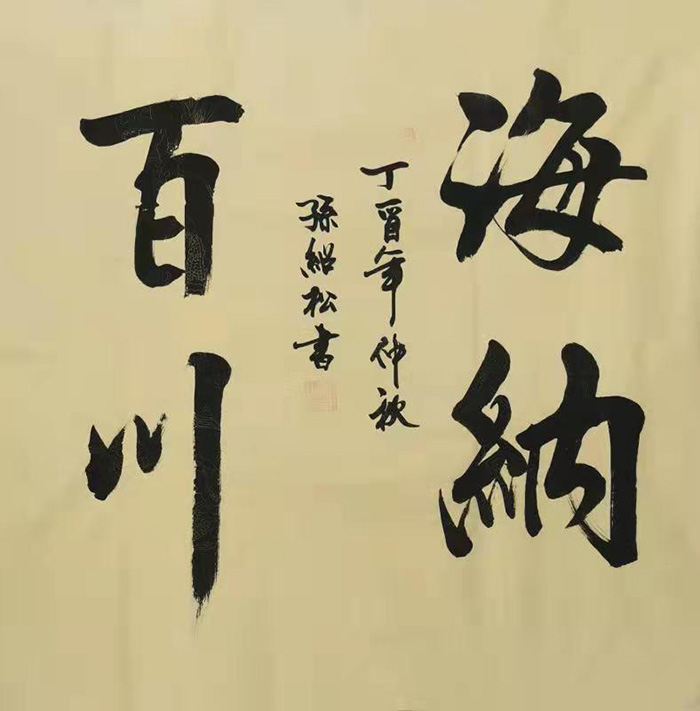 海納
百川
丁酉年仲秋
孫紹松書